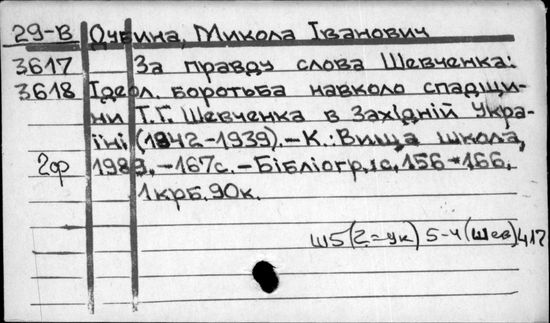 29-В Дубина, Микола Іванович
3617 За правду слова Шевченка:
3618 Ідеол. боротьба навколо спадщи-
ни Т.Г. Шевченка в Західній Укра-
їні (1842-1939).-К.: Вища школа,
2ор 1989.-167с.-Бібліогр.: с. 156-166.
1крб. 90к.
Ш5(2=Ук) 5-4(Шев) 417